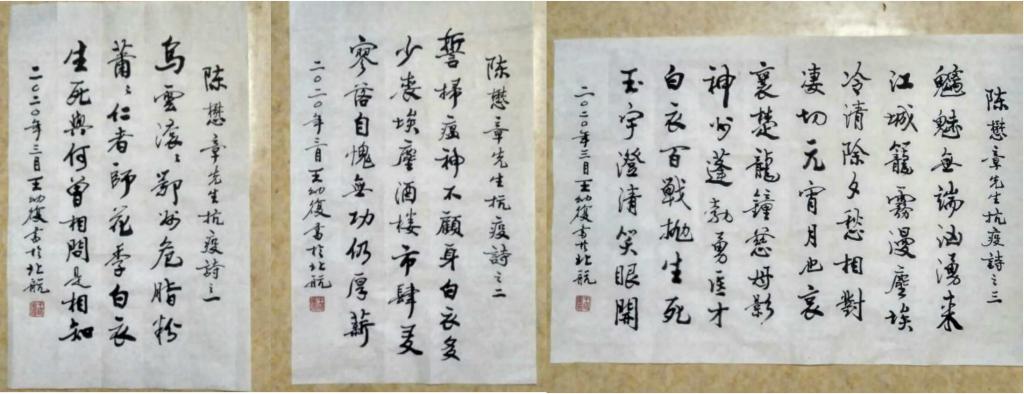 陳懋章先生抗疫詩之一
烏雲滾〻鄂州危脂粉
蕭〻仁者師花季白衣
生死與何曾相問是相知
二〇二〇年三月王幼復書於北航
陳懋章先生抗疫詩之二
誓掃瘟神不顧身白衣多
少喪埃塵酒樓市肆更
寥落自愧無功仍厚薪
二〇二〇年三月王幼復書於北航
陳懋章先生抗疫詩之三
魑魅無端洶湧來
江城籠霧漫塵埃
冷清除夕愁相對
凄切元宵月也哀
襄楚龍鐘慈母影
神州蓬勃勇医才
白衣百戰拋生死
玉宇澄清笑眼開
二〇二〇年三月王幼復書於北航